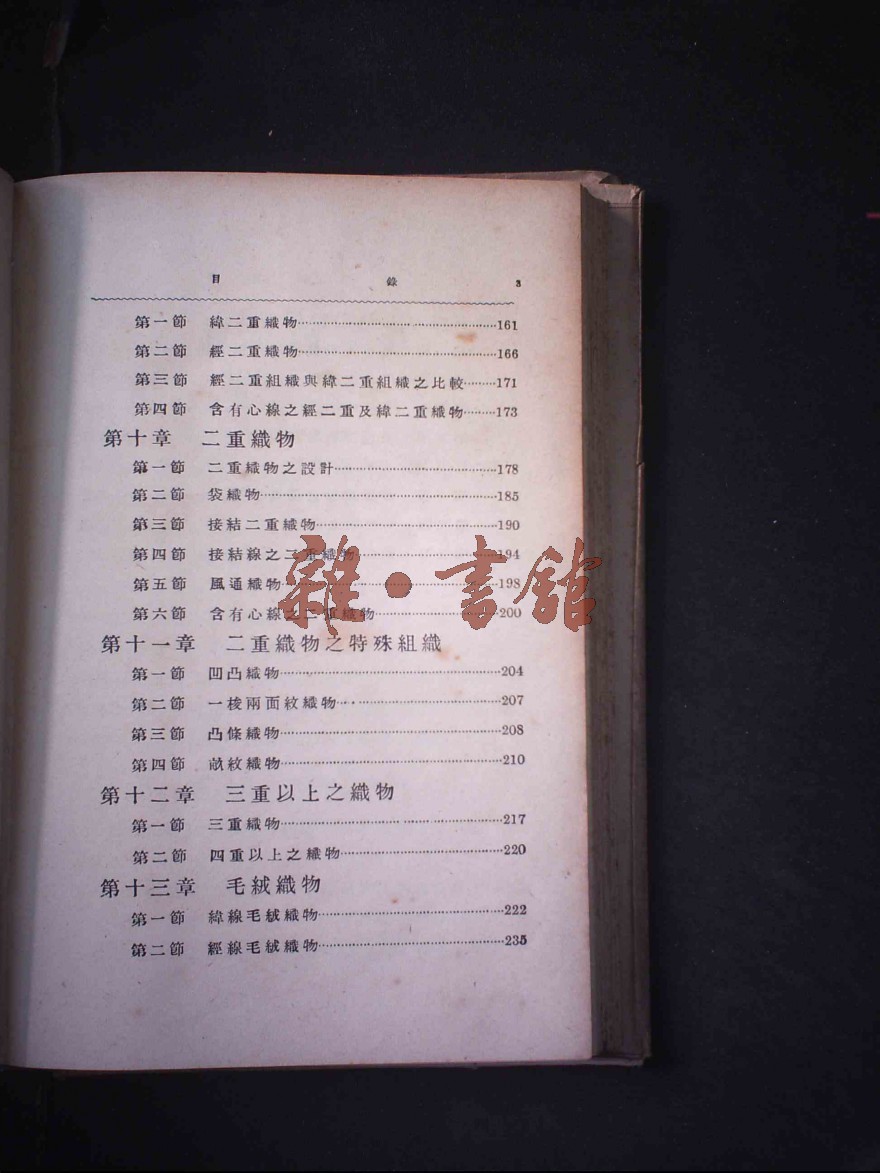 目 錄 3
第一節 緯二重織物……161
第二節 經二重織物……166
第三節 經二重組織與緯二重組織之比較……171
第四節 含有心線之經二重及緯二重織物……173
第十章 二重織物
第一節 二重織物之設計……178
第二節 袋織物……185
第三節 接結二重織物……190
第四節 接結線之二重織物……194
第五節 風通織物……198
第六節 含有心線之二重織物……200
雜·書館
第十一章 二重織物之特殊組織
第一節 凹凸織物……204
第二節 一梭兩面紋織物……207
第三節 凸條織物……208
第四節 紋織物……210
第十二章 三重以上之織物
第一節 三重織物……217
第二節 四重以上之織物……220
第十三章 毛絨織物
第一節 緯線毛絨織物……222
第二節 經線毛絨織物……235